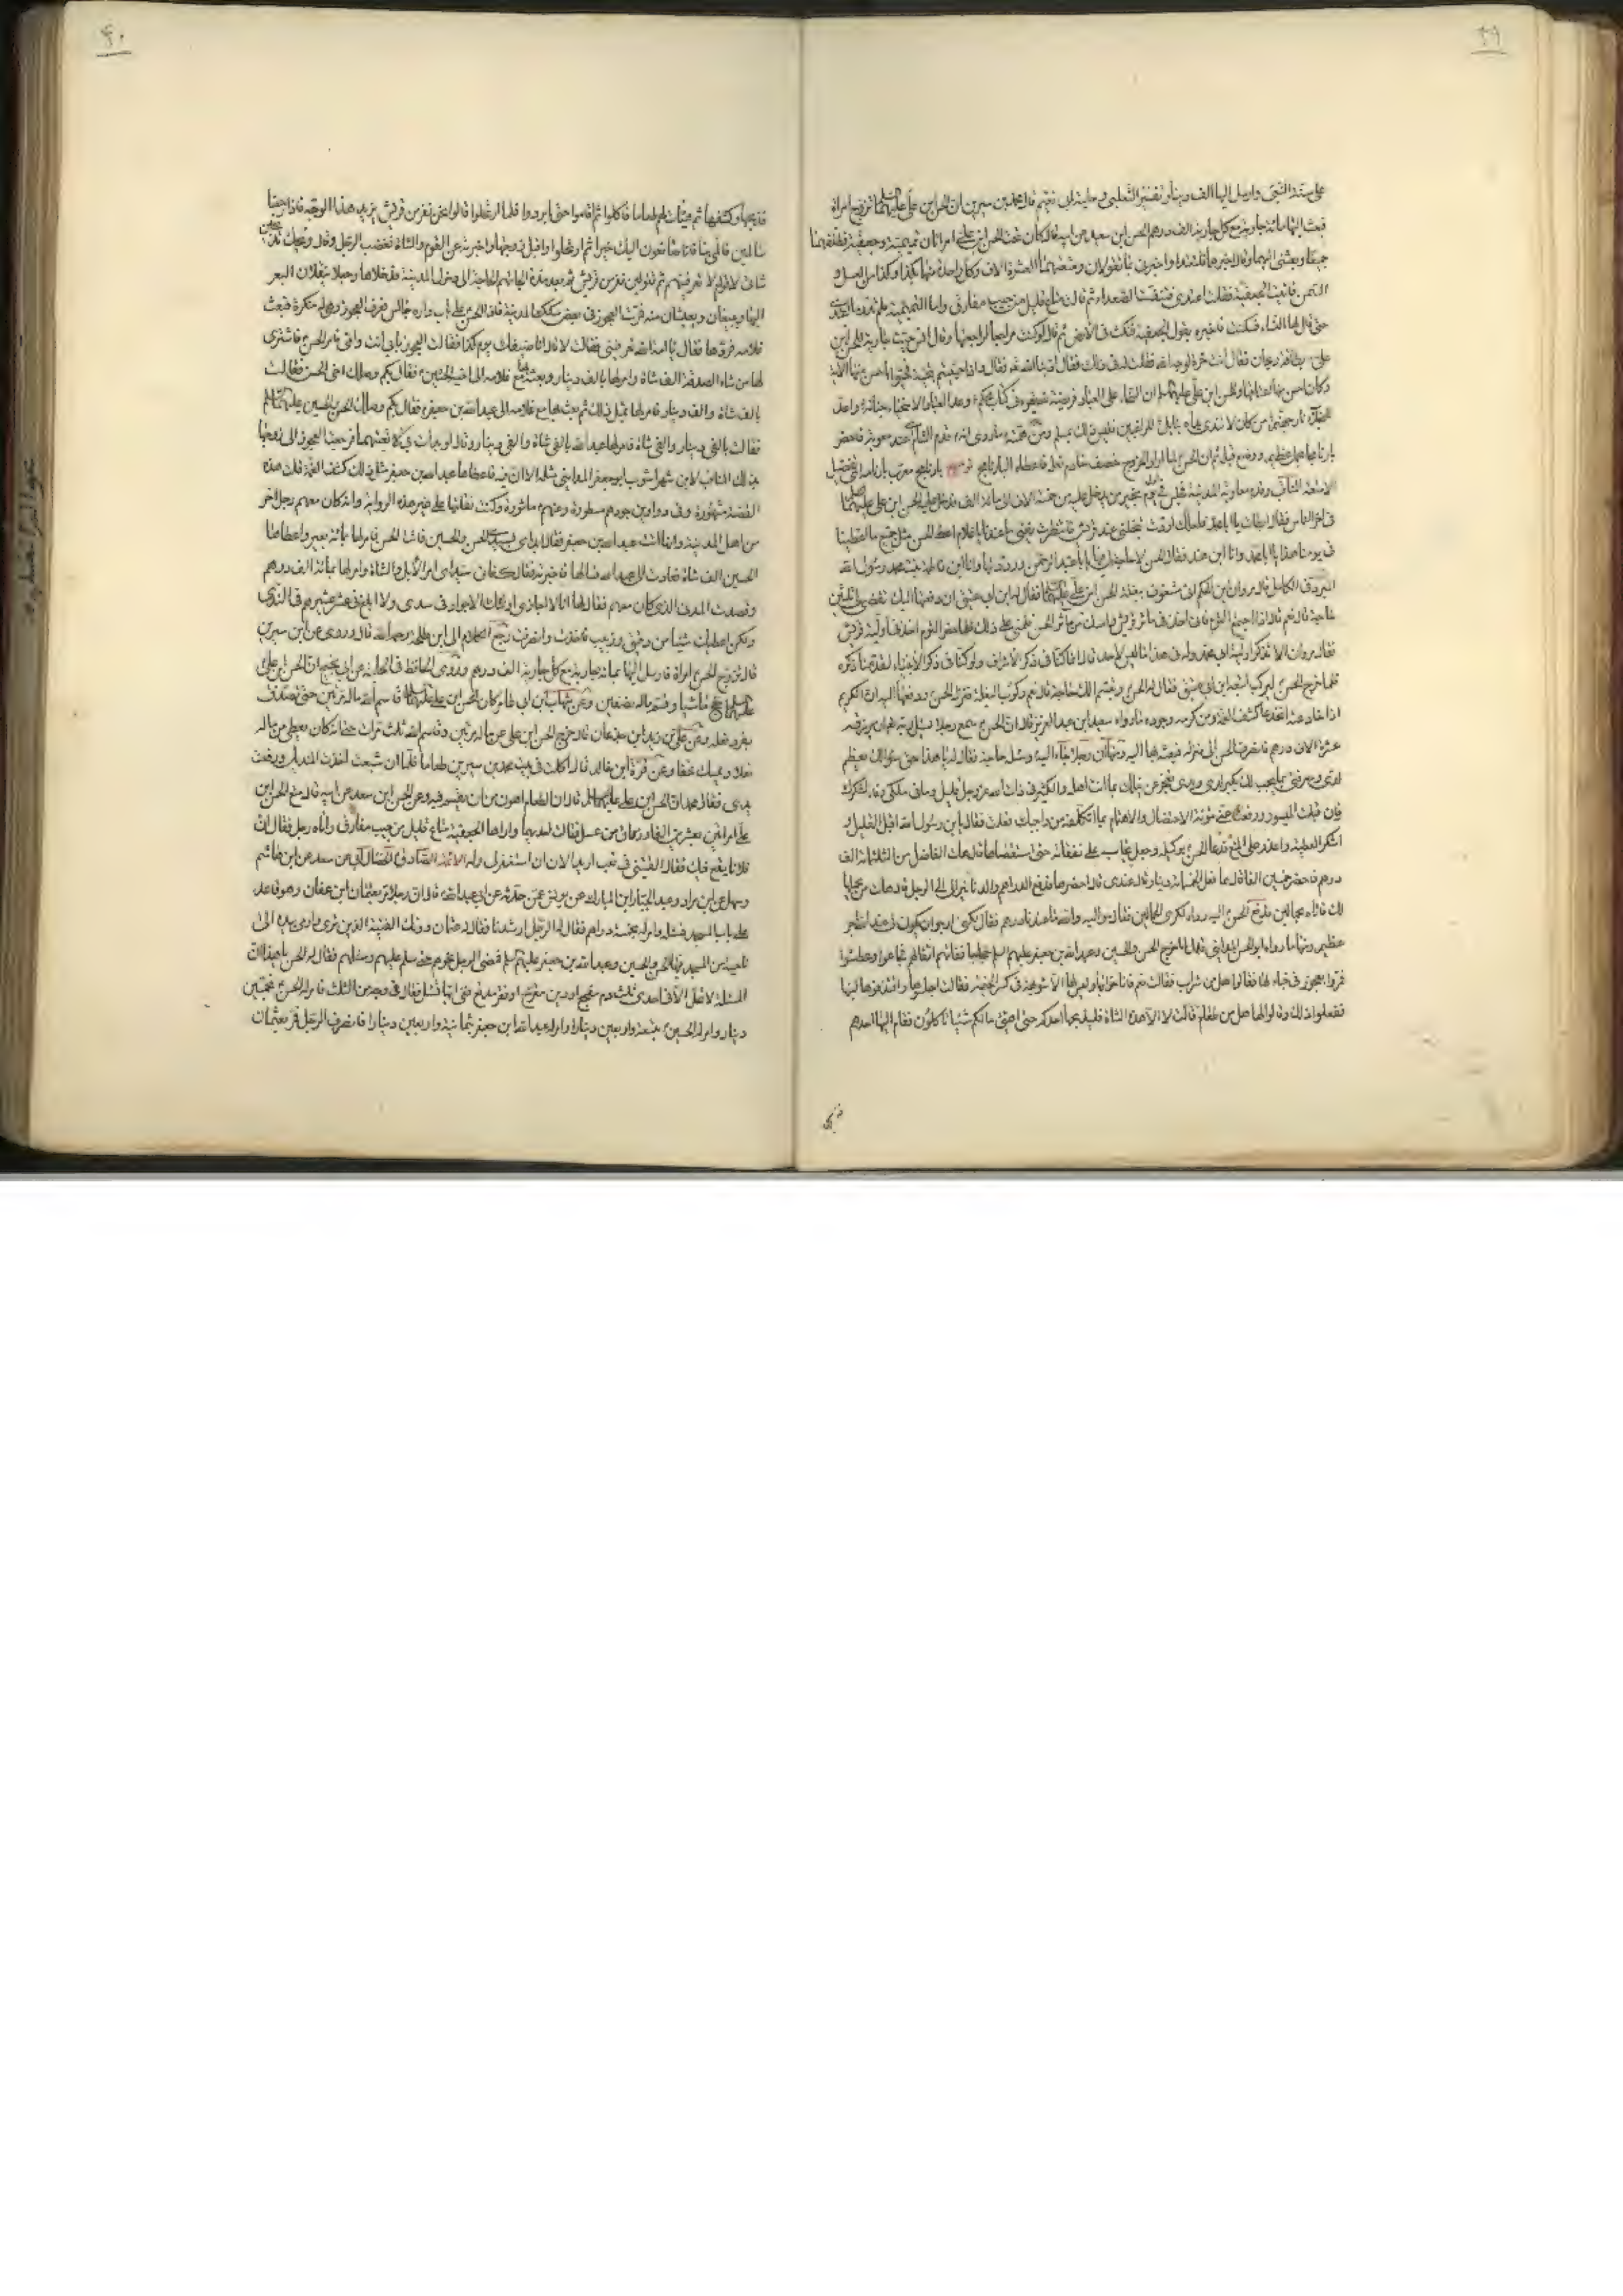 ٣٩
على ستة النبي وارسل اليها الف دينار تفسير الثعلبي وحلية ابي نعيم قال محمد بن سيرين ان الحسن ابن علي عليهما السلم تزوج امراة
فبعث اليها مائة جارية مع كل جارية الف درهم الحسن ابن سعيد عن ابيه قال كان تحت الحسن ابن علي امراتان تميمية وجعفية فطلقهما
جميعا وبعثني اليهما وقال اخبرهما فلتعتدا واخبرني بما تقولان ومتعهما العشرة الالاف وكل واحدة منهما بكذا وكذا من العسل و
السمن فاتيت الجعفية فقلت اعتدي فتنفست الصعداء ثم قالت متاع قليل من حبيب مفارق واما التميمية فلم تدر ما اعتدي
حتى قال لها النساء فسكتت فاخبرته بقول الجعفية فنكت في الارض ثم قال لو كنت مراجعا لامراة لراجعتها وقال انس حيت جارية للحسن ابن
علي بطاقة ريحان فقال انت حرة لوجه الله فقلت له في ذلك فقال ادبنا الله تعالى فقال واذا حييتم بتحية فحيوا باحسن منها الآية
وكان احسن منها اعتاقها وللحسن ابن علي عليهما السلم ان السخاء على العباد فريضة لله يقرء في كتاب محكم وعد العباد الاسخياء جنانه واعد
للبخلاء نار جهنم من كان لا تندى يداه بنائل للراغبين فليس ذاك بمسلم ومن همته ما روى انه قدم الشام عند معوية فاحضر
بارنامجا بحمل عظيم ووضع قبله ثم ان الحسن لما اراد الخروج خصف خادم نعله فاعطاه البارنامج بارنامج معرب بارنامه اي تفصيل
الامتعة وقدم معاوية المدينة فجلس في اول يوم يجيز من يدخل عليه من خمسة الاف الى مائة الف فدخل عليه الحسن ابن علي عليهما السلم
في اخر الناس فقال ابطات يا ابا محمد فلعلك اردت تبخلني عند قريش فانتظرت يفنى ما عندنا يا غلام اعط الحسن مثل جميع ما اعطينا
في يومنا هذا يا ابا محمد وانا ابن هند فقال الحسن لا حاجة لي فيها يا ابا عبد الرحمن ورددتها وانا ابن فاطمة بنت محمد رسول الله
المبرد في الكامل قال مروان ابن الحكم اني مشغوف ببغلة الحسن ابن علي عليهما السلم فقال له ابن ابي عتيق ان دفعتها اليك تقضي لي ثلثين
حاجة قال نعم قال اذا اجتمع القوم فاني اخذ في ماثر قريش وامسك عن ماثر الحسن فلمني على ذلك فلما حضر القوم اخذ في اولية قريش
فقال مروان الا تذكر اولية ابي محمد وله في هذا ما ليس لاحد قال انما كنا في ذكر الاشراف ولو كنا في ذكر الانبياء لقدمنا ذكره
فلما خرج الحسن ليركب اتبعه ابن ابي عتيق فقال له الحسن وتبسم الك حاجة قال نعم ركوب البغلة فنزل الحسن ودفعها اليه ان الكريم
اذا خادعته انخدعا كشف الغمة ومن كرمه وجوده ما رواه سعيد ابن عبد العزيز قال ان الحسن سمع رجلا يسئل ربه تعالى ان يرزقه
عشرة الاف درهم فانصرف الحسن الى منزله فبعث بها اليه ومنها ان رجلا جاء اليه وسئل حاجة فقال له يا هذا حق سؤالك يعظم
لدي ومعرفتي بما يجب لك يكبر لدي ويدي تعجز عن نيلك بما انت اهله والكثير في ذات الله عز وجل قليل وما في ملكي وفاء لشكرك
فان قبلت الميسور ورفعت عني مؤنة الاحتفال والاهتمام بما اتكلفه من واجبك فعلت فقال يابن رسول الله اقبل القليل و
اشكر العطية واعذر على المنع فدعا الحسن بوكيله وجعل يحاسبه على نفقاته حتى استقصاها قال هات الفاضل من الثلثمائة الف
درهم فاحضر خمسين الفا قال فما فعل الخمسمائة دينار قال عندي قال احضرها فدفع الدراهم والدنانير الى الرجل وقال هات من يحملها
لك فاتاه بحمالين فدفع الحسن اليه رداءه لكرى الحمالين فقال مواليه والله ما عندنا درهم فقال لكني ارجو ان يكون لي عند الله اجر
عظيم ومنها ما رواه ابو الحسن المدايني قال خرج الحسن والحسين وعبد الله بن جعفر عليهم السلم حجاجا ففاتهم اثقالهم فجاعوا وعطشوا
فمروا بعجوز في خباء لها فقالوا هل من شراب فقالت نعم فاناخوا بها وليس لها الا شويهة في كسر الخيمة فقالت احلبوها وامتذقوا لبنها
ففعلوا ذلك وقالوا لها هل من طعام قالت لا الا هذه الشاة فليذبحها احدكم حتى اهيئ لكم شيئا تاكلون فقام اليها احدهم
فذبحها
٤٠
فذبحها وكشطها ثم هيات لهم طعاما فاكلوا ثم اقاموا حتى ابردوا فلما ارتحلوا قالوا نحن نفر من قريش نريد هذا الوجه فاذا رجعنا
سالمين فالمي بنا فانا صانعون اليك خيرا ثم ارتحلوا واقبل زوجها واخبرته عن القوم والشاة فغضب الرجل وقال ويحك تذبحين
شاتي لاقوام لا تعرفينهم ثم تقولين نفر من قريش ثم بعد مدة الجاتهم الحاجة الى دخول المدينة فدخلاها وجعلا ينقلان البعر
اليها ويبيعان ويعيشان منه فمرت العجوز في بعض سكك المدينة فاذا الحسن على باب داره جالس فعرف العجوز وهي له منكرة فبعث
غلامه فردها فقال يا امة الله تعرفيني فقالت لا قال انا ضيفك يوم كذا فقالت العجوز بابي انت وامي فامر الحسن فاشترى
لها من شاء الصدقة الف شاة وامر لها بالف دينار وبعث بها مع غلامه الى اخيه الحسين فقال بكم وصلك اخي الحسن فقالت
بالف شاة والف دينار فامر لها بمثل ذلك ثم بعث بها مع غلامه الى عبد الله بن جعفر فقال بكم وصلك الحسن والحسين عليهما السلم
فقالت بالفي دينار والفي شاة فامر لها عبد الله بالفي شاة والفي دينار وقال لو بدات بي لاتعبتهما فرجعت العجوز الى زوجها
بذلك المناقب لابن شهراشوب ابو جعفر المدايني مثله الا ان فيه فاعطاها عبد الله بن جعفر مثل ذلك كشف الغمة قلت هذه
القصة مشهورة وفي دواوين جودهم مسطورة وعنهم ماثورة وكنت نقلتها على غير هذه الرواية وانه كان معهم رجل اخر
من اهل المدينة وانها اتت عبد الله بن جعفر فقال ابدئي بسيدي الحسن والحسين فاتت الحسن فامر لها بمائة بعير واعطاها
الحسين الف شاة فعادت الى عبد الله فسالها فاخبرته فقال كفاني سيداي امر الابل والشاة وامر لها بمائة الف درهم
وقصدت المدني الذي كان معهم فقال لها انا لا اجاري اولئك الاجواد في مدى ولا ابلغ عشر عشيرهم في الندى
ولكن اعطيك شيئا من دقيق وزبيب فاخذت وانصرفت رجع الكلام الى ابن طلحة رحمه الله قال وروى عن ابن سيرين
قال تزوج الحسن امراة فارسل اليها بمائة جارية مع كل جارية الف درهم وروى الحافظ في الحلية عن ابي نجيح ان الحسن بن علي
عليهما السلم حج ماشيا وقسم ماله نصفين وعن شهاب ابن ابي عامر ان الحسن ابن علي عليهما السلم قاسم الله ماله مرتين حتى تصدق
بفرد نعله وعن علي بن زيد ابن جدعان قال خرج الحسن ابن علي من ماله مرتين وقاسم الله ثلث مرات حتى انه كان يعطي من ماله
نعلا ويمسك نعلا ويعطي خفا ويمسك خفا وعن قرة ابن خالد قال اكلت في بيت محمد بن سيرين طعاما فلما ان شبعت اخذت المنديل ورفعت
يدي فقال محمد ان الحسن ابن علي عليهما السلم قال ان الطعام اهون من ان يقسم فيه وعن الحسن ابن سعد عن ابيه قال متع الحسن ابن
علي امراتين بعشرين الفا وزقاق من عسل فقالت احديهما واراها الجعفية متاع قليل من حبيب مفارق واتاه رجل فقال ان
فلانا يقع فيك فقال القيتني في تعب اريد الان ان استغفر لي وله الائمة الصادق الخصال ابي عن سعد عن ابن هاشم
وسهل عن ابن مراد وعبد الجبار ابن المبارك عن يونس عمن حدثه عن ابي عبد الله قال ان رجلا مر بعثمان ابن عفان وهو قاعد
على باب المسجد فسئله فامر له بخمسة دراهم فقال له الرجل ارشدني فقال له عثمان دونك الفتية الذين ترى واومى بيده الى
ناحية من المسجد فيها الحسن والحسين وعبد الله بن جعفر عليهم السلم فمضى الرجل نحوهم حتى سلم عليهم وسئلهم فقال له الحسن يا هذا ان
المسئلة لا تحل الا في احدى ثلث دم مفجع او دين مقرح او فقر مدقع ففي ايها تسئل فقال في وجه من الثلث فامر له الحسن بخمسين
دينارا وامر له الحسين بتسعة واربعين دينارا وامر له عبد الله ابن جعفر بثمانية واربعين دينارا فانصرف الرجل فمر بعثمان